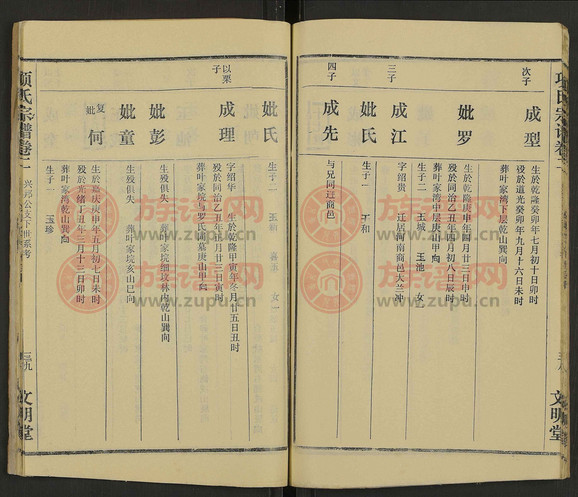 項氏宗譜卷二
三八
文明堂
次子
成型
生於乾隆癸卯年七月初十日卯时
殁於道光癸卯年九月十六日未时
葬叶家湾下层乾山巽向
妣罗
生於乾隆庚申年四月廿三日申时
殁於同治乙丑年四月初八日辰时
葬叶家湾中层庚山甲向
生子二 玉城 玉池 女
三子
成江
字绍贵 迁居河南商邑大兰冲
妣氏
生子一 玉和
四子
成先
与兄同迁商邑
妣氏
生子二 玉和 喜准 女一
以栗子
成理
字绍华 生於乾隆甲寅年冬月廿五日丑时
殁於同治乙丑年五月廿三日寅时
葬叶家垸与罗氏同墓庚山甲向
妣彭
生殁俱失 葬叶家垸细坟林内乾山巽向
妣童
生殁俱失 葬叶家垸亥山巳向
复妣何
生於嘉庆庚申年五月初七日未时
殁於光绪丁丑年三月十三日卯时
葬叶家湾乾山巽向
生子一 玉珍
項氏宗譜卷二
兴邦公支下世系考
三九
文明堂
族谱网
www.zupu.cn
族谱网
www.zupu.cn